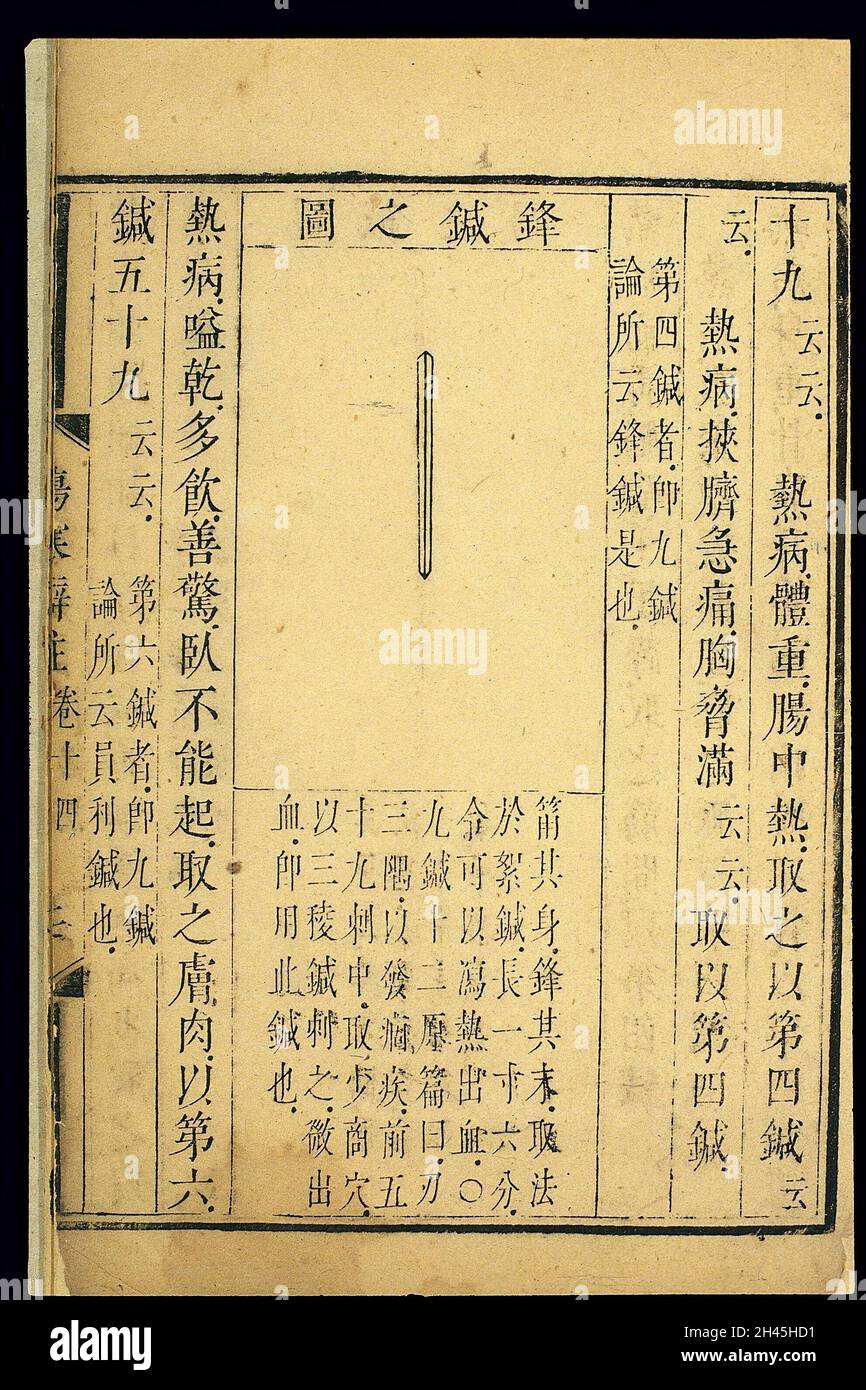 十九云云。熱病。體重。腸中熱。取之以第四鍼云
云。熱病。挾臍急痛。胸脅滿云云。取以第四鍼。
第四鍼者。卽九鍼
論所云鋒鍼是也。
鋒鍼之圖
筩其身。鋒其末。取法
於絮鍼。長一寸六分。
令可以瀉熱出血。○
九鍼十二原篇曰。刃
三隅。以發痼疾。前五
十九刺中。取少商穴。
以三稜鍼刺之。微出
血。卽用此鍼也。
熱病。嗌乾。多飲。善驚。臥不能起。取之膚肉。以第六。
鍼五十九云云。
第六鍼者。卽九鍼
論所云員利鍼也。
卷十四
alamy
Image ID: 2H45HD1
www.alamy.com